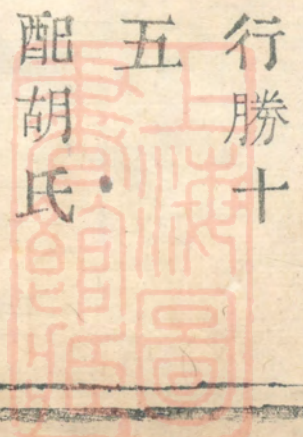 行勝十
五
配胡氏
上海圖
書館藏